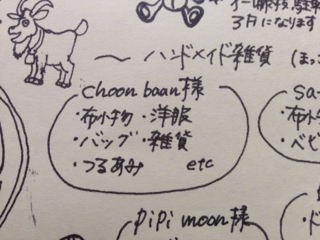 3月になります
〜ハンドメイド雑貨(まっ
choon baan様
・布小物 ・洋服
・バッグ ・雑貨
・つるあみ etc
sa-
・布小
・ベビ
pipi moon様
・ド